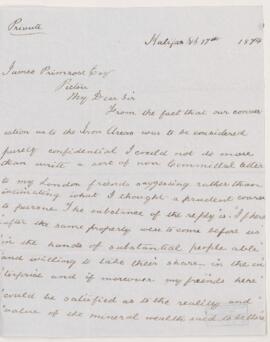 Private
Halifax 17th 1874
James Primrose Esq
Pictou
My Dear Sir
From the fact that our conver
ation as to the Iron Areas was to be considered
purely confidential I could not do more
than write a sort of non Committal letter
to my London friends suggesting rather than
intimating what I thought a prudent course
to pursue. The substance of the reply is: If here
after the same property were to come before us
in the hands of substantial people able
and willing to take their share in the en
terprise and if moreover my friends here
could be satisfied as to the reality and
value of the mineral wealth said to be there